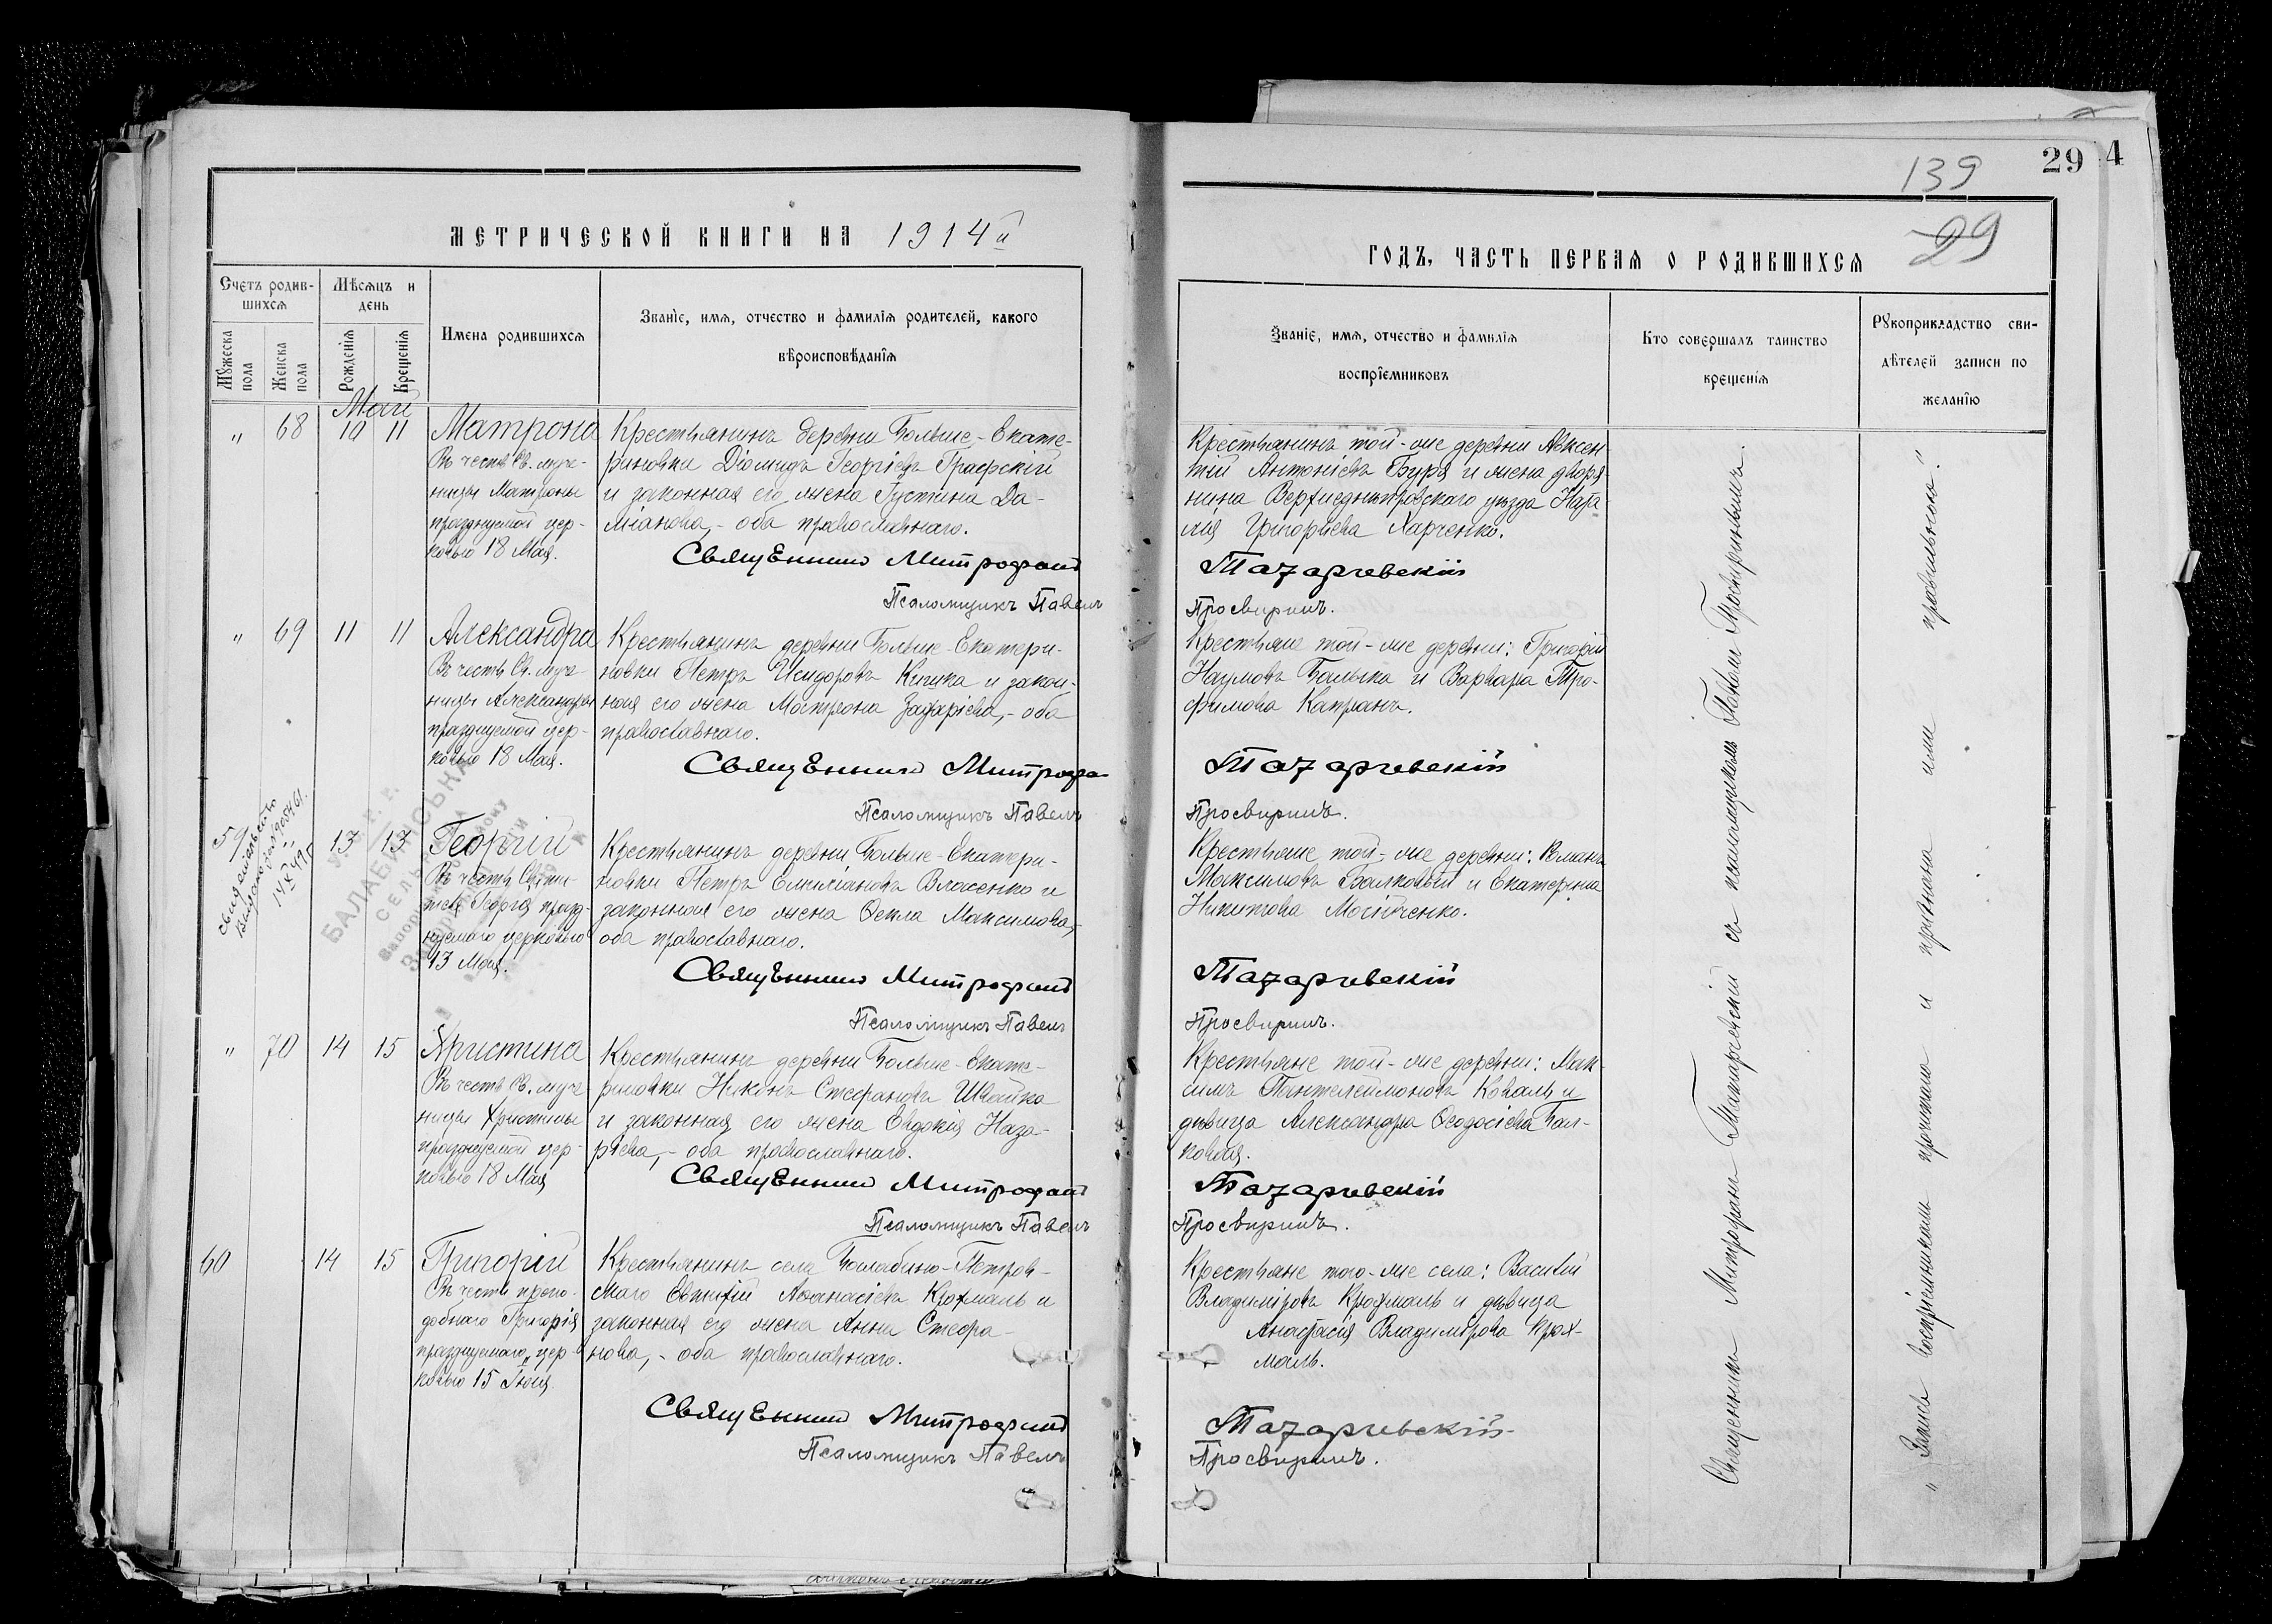 139
29
4
29
МЕТРИЧЕСКОЙ КНИГИ НА 1914й
ГОДЪ, ЧАСТЬ ПЕРВАЯ О РОДИВШИХСЯ
Счетъ родив-
шихся
Мужеска
пола
Женска
пола
Мѣсяцъ и
день
Рожденія
Крещенія
Имена родившихся
Званіе, имя, отчество и фамилія родителей, какого
вѣроисповѣданія
Званіе, имя, отчество и фамилія
воспріемниковъ
Кто совершалъ таинство
крещенія
Рукоприкладство сви-
дѣтелей записи по
желанію
Май
" 68 10 11
Матрона
Въ честь Св. муче-
ницы Матроны
празднуемой цер-
ковью 18 Мая.
Крестьянинъ деревни Больше-Екате-
риновки Діомидъ Георгіевъ Графскій
и законная его жена Іустина Да-
міанова, - оба православнаго.
Священникъ Митрофанъ
Псаломщикъ Павелъ
Крестьянинъ той-же деревни Авксен-
тій Антоніевъ Буря и жена дворя-
нина Верхнеднѣпровскаго уѣзда Ната-
лія Григоріева Харченко.
Тазарчевскій
Просвиринъ.
" 69 11 11
Александра
Въ честь Св. муче-
ницы Александры
празднуемой цер-
ковью 18 Мая.
Крестьянинъ деревни Больше-Екатери-
новки Петръ Исидоровъ Кишка и закон-
ная его жена Матрона Захаріева, - оба
православнаго.
Священникъ Митрофа-
Псаломщикъ Павелъ
Крестьяне той-же деревни: Григорій
Наумовъ Балыка и Варвара Тро-
фимова Капранъ.
Тазарчевскій
Просвиринъ.
59 13 13
свидетельство
14/X 49г.
БАЛАБИНСЬКА
СЕЛЬ
Георгій
празд-
нуемаго церковью
13 Мая.
Крестьянинъ деревни Больше-Екатери-
новки Петръ Емиліановъ Власенко и
законная его жена Ѳекла Максимова, -
оба православнаго.
Священникъ Митрофанъ
Псаломщикъ Павелъ
Крестьяне той-же деревни: Романъ
Максимовъ Балковый и Екатерина
Никитова Мосійченко.
Тазарчевскій
Просвиринъ.
" 70 14 15
Христина
Въ честь Св. муче-
ницы Христины
празднуемой цер-
ковью 18 Мая
Крестьянинъ деревни Больше-Екате-
риновки Никонъ Стефановъ Швайка
и законная его жена Евдокія Наза-
ріева, - оба православнаго.
Священникъ Митрофанъ
Псаломщикъ Павелъ
Крестьяне той-же деревни: Мак-
симъ Пантелеймоновъ Коваль и
дѣвица Александра Ѳеодосіева Бал-
ковая.
Тазарчевскій
Просвиринъ.
60 14 15
Григорій
Въ честь препо-
добнаго Григорія
празднуемаго цер-
ковью 15 Іюня
Крестьянинъ села Балабино-Петров-
скаго Евтихій Аѳанасіевъ Крохмаль и
законная его жена Анна Стефа-
нова, - оба православнаго.
Священникъ Митрофанъ
Псаломщикъ Павелъ
Крестьяне того-же села: Василій
Владиміровъ Крохмаль и дѣвица
Анастасія Владимірова Крох-
маль.
Тазарчевскій
Просвиринъ.
Священникъ Митрофанъ Тазарчевскій съ псаломщикомъ Павломъ Просвиринымъ.
" Запись воспріемникамъ прочитана и признана ими правильною."